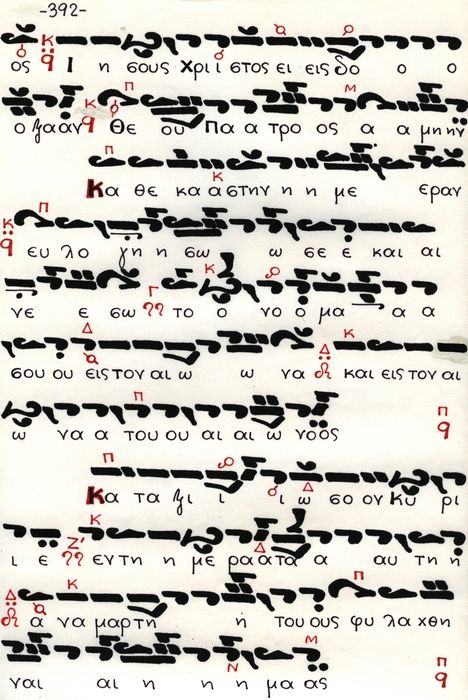 -392-
ος Ι η σους Χρι ι στος ει εις δο ο ο
ο ξααν Θε ου Πα α τρο ος α α μηην
Κα θε κα αστην η η με εραν
ευ λο γη η σω ω σε ε και αι
νε ε σω το ο νο ο μα α α
σου ου εις τον αι ω ω να και εις τον αι
ω να α του ου αι αι ω νοος
Κα τα ξι ι ι ω σο ον Κυ ρι
ι ε εν τη η με ρα ατα α αυ τη η
α να μαρτη η του ους φυ λα χθη
ναι αι η η η μα ας